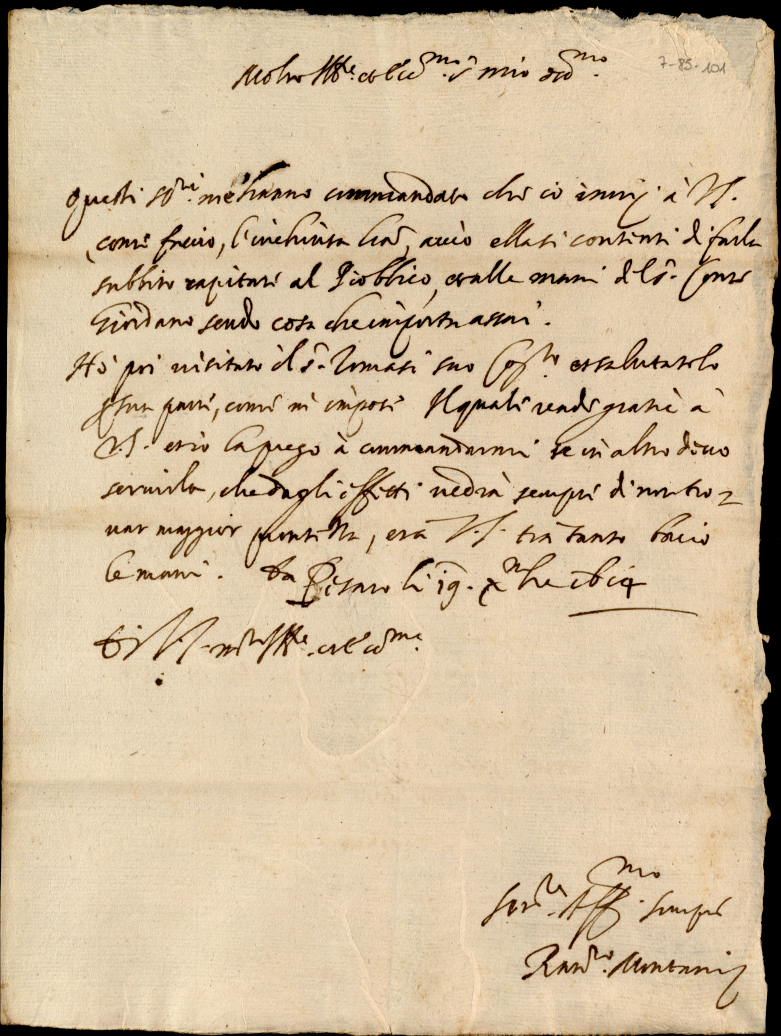 Molto Ill.re et ecc.mo s.r mio oss.mo
7-85-101
Questi SS.ri me hanno commandato che io invij à V.S.
come faccio, l'inchiusa l'ra, acciò ella si contenti di farla
subbito capitare al Piobbico, et alle mani del s.r Conte
Giordano sendo cosa che importa assai.
Hò poi visitato il s.r Tomasi suo et salutatolo
sua parte, come m'impose Il quale rende gratie à
V.S. et io la prego à commandarmi se in altro devo
servirla, che dagli effetti vedrà sempre di non tro=
var maggior pronta, et à V.S. trà tanto bacio
le mani. Da Pesaro li 19. Xbre 1614
Di V.S. molto Ill.re et ecc.ma
Ser.re Aff.mo sempre
Montanij